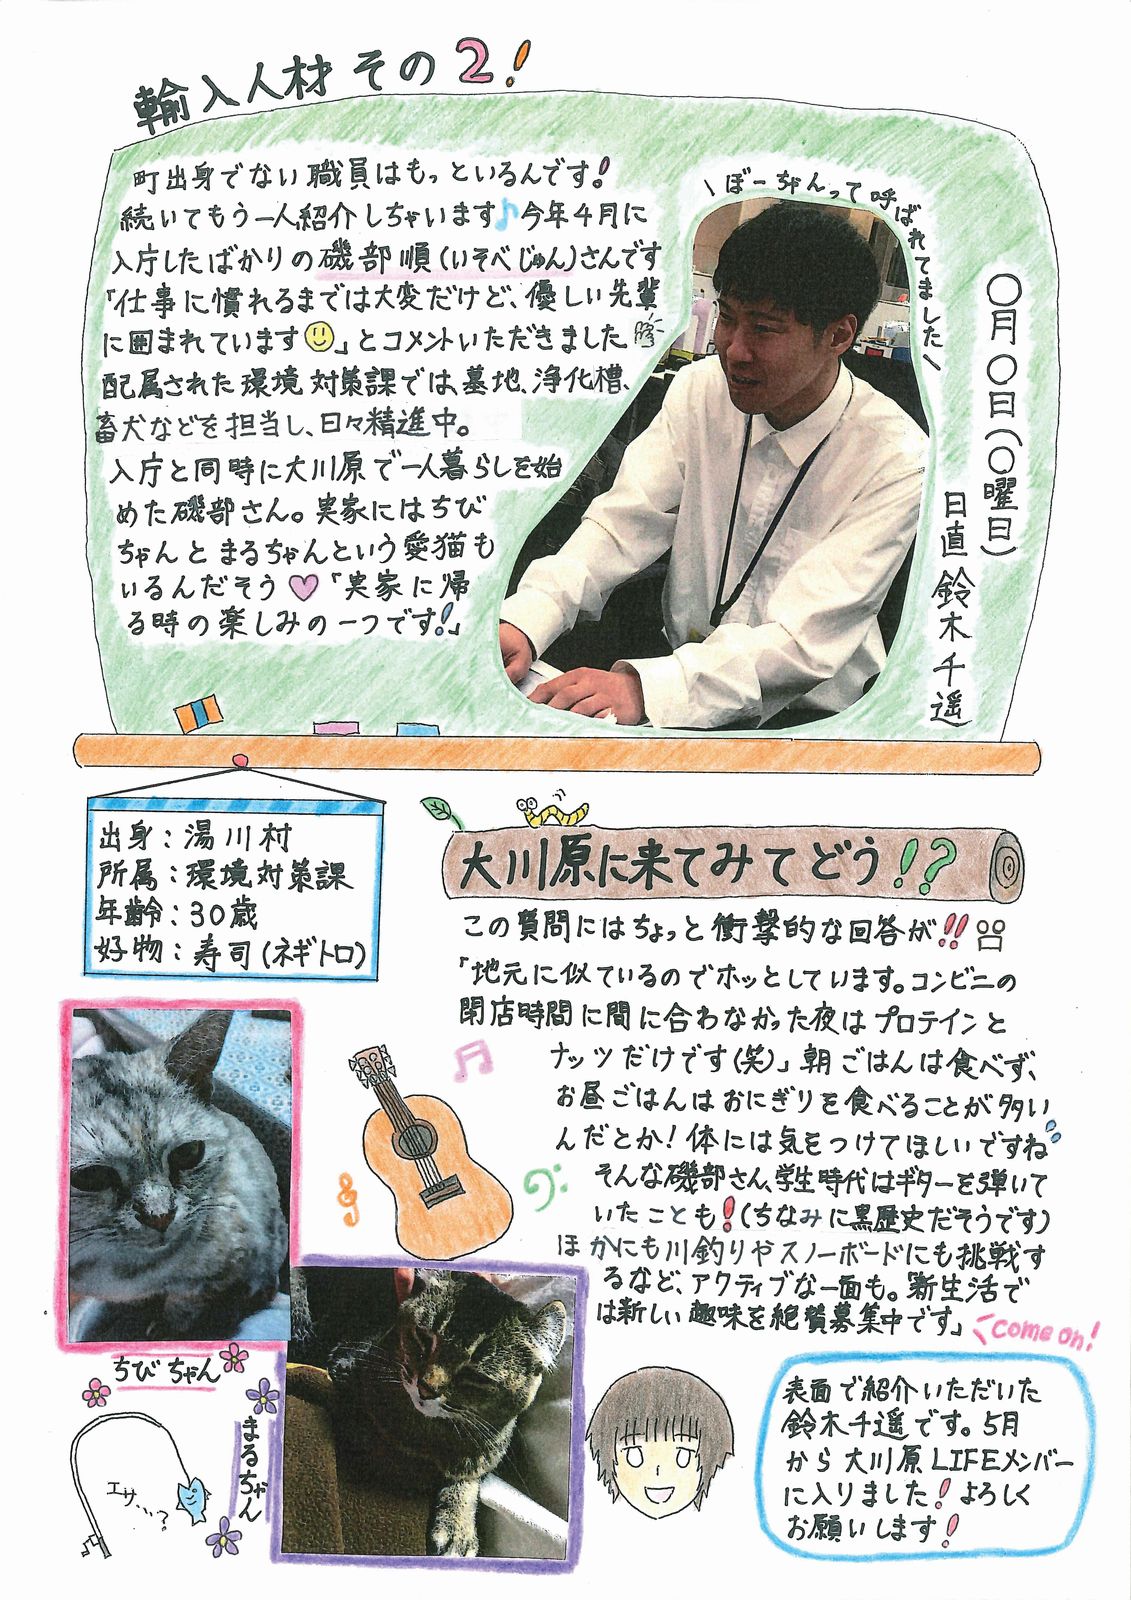 輸入人材その2!
町出身でない職員はもっといるんです!
続いてもう一人紹介しちゃいます♪今年4月に
入庁したばかりの磯部順(いそべじゅん)さんです
「仕事に慣れるまでは大変だけど、優しい先輩
に囲まれています😊」とコメントいただきました
配属された環境対策課では墓地、浄化槽、
畜犬などを担当し、日々精進中。
入庁と同時に大川原で一人暮らしを始
めた磯部さん。実家にはちび
ちゃんとまるちゃんという愛猫も
いるんだそう♥「実家に帰
る時の楽しみの一つです!」
\ぼーちゃんって呼ばれてました/
〇月〇日(〇曜日)
日直 鈴木千遥
出身:湯川村
所属:環境対策課
年齢:30歳
好物:寿司(ネギトロ)
大川原に来てみてどう!?
この質問にはちょっと衝撃的な回答が!!
「地元に似ているのでホッとしています。コンビニの
閉店時間に間に合わなかった夜はプロテインと
ナッツだけです(笑)」朝ごはんは食べず、
お昼ごはんはおにぎりを食べることが多い
んだとか!体には気をつけてほしいですね
そんな磯部さん、学生時代はギターを弾いて
いたことも!(ちなみに黒歴史だそうです)
ほかにも川釣りやスノーボードにも挑戦す
るなど、アクティブな一面も。「新生活で
は新しい趣味を絶賛募集中です」
come on!
ちびちゃん
まるちゃん
エサ...?
表面で紹介いただいた
鈴木千遥です。5月
から大川原LIFEメンバー
に入りました!よろしく
お願いします!